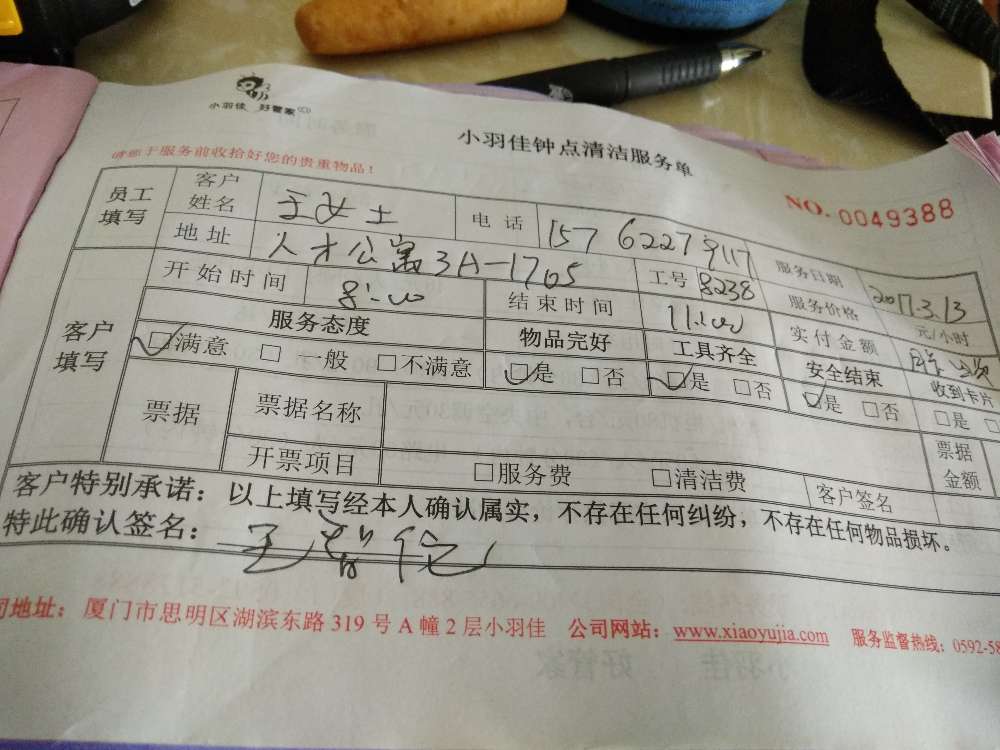 小羽佳 好管家
小羽佳钟点清洁服务单
请您于服务前收拾好您的贵重物品！
NO. 0049388
员工填写 客户姓名 王女士 电话 服务日期 2017.3.13
地址 人才公寓3A-1705 工号 8238 服务价格 元/小时
客户填写 开始时间 8:00 结束时间 11:00 实付金额
服务态度 物品完好 工具齐全 安全结束 收到卡片
☑满意 □一般 □不满意 ☑是 □否 ☑是 □否 ☑是 □否 □是 □
票据 票据名称 票据金额
开票项目 □服务费 □清洁费 客户签名
客户特别承诺：以上填写经本人确认属实，不存在任何纠纷，不存在任何物品损坏。
特此确认签名：
司地址：厦门市思明区湖滨东路 319 号 A 幢 2 层小羽佳 公司网站：www.xiaoyujia.com 服务监督热线：0592-58